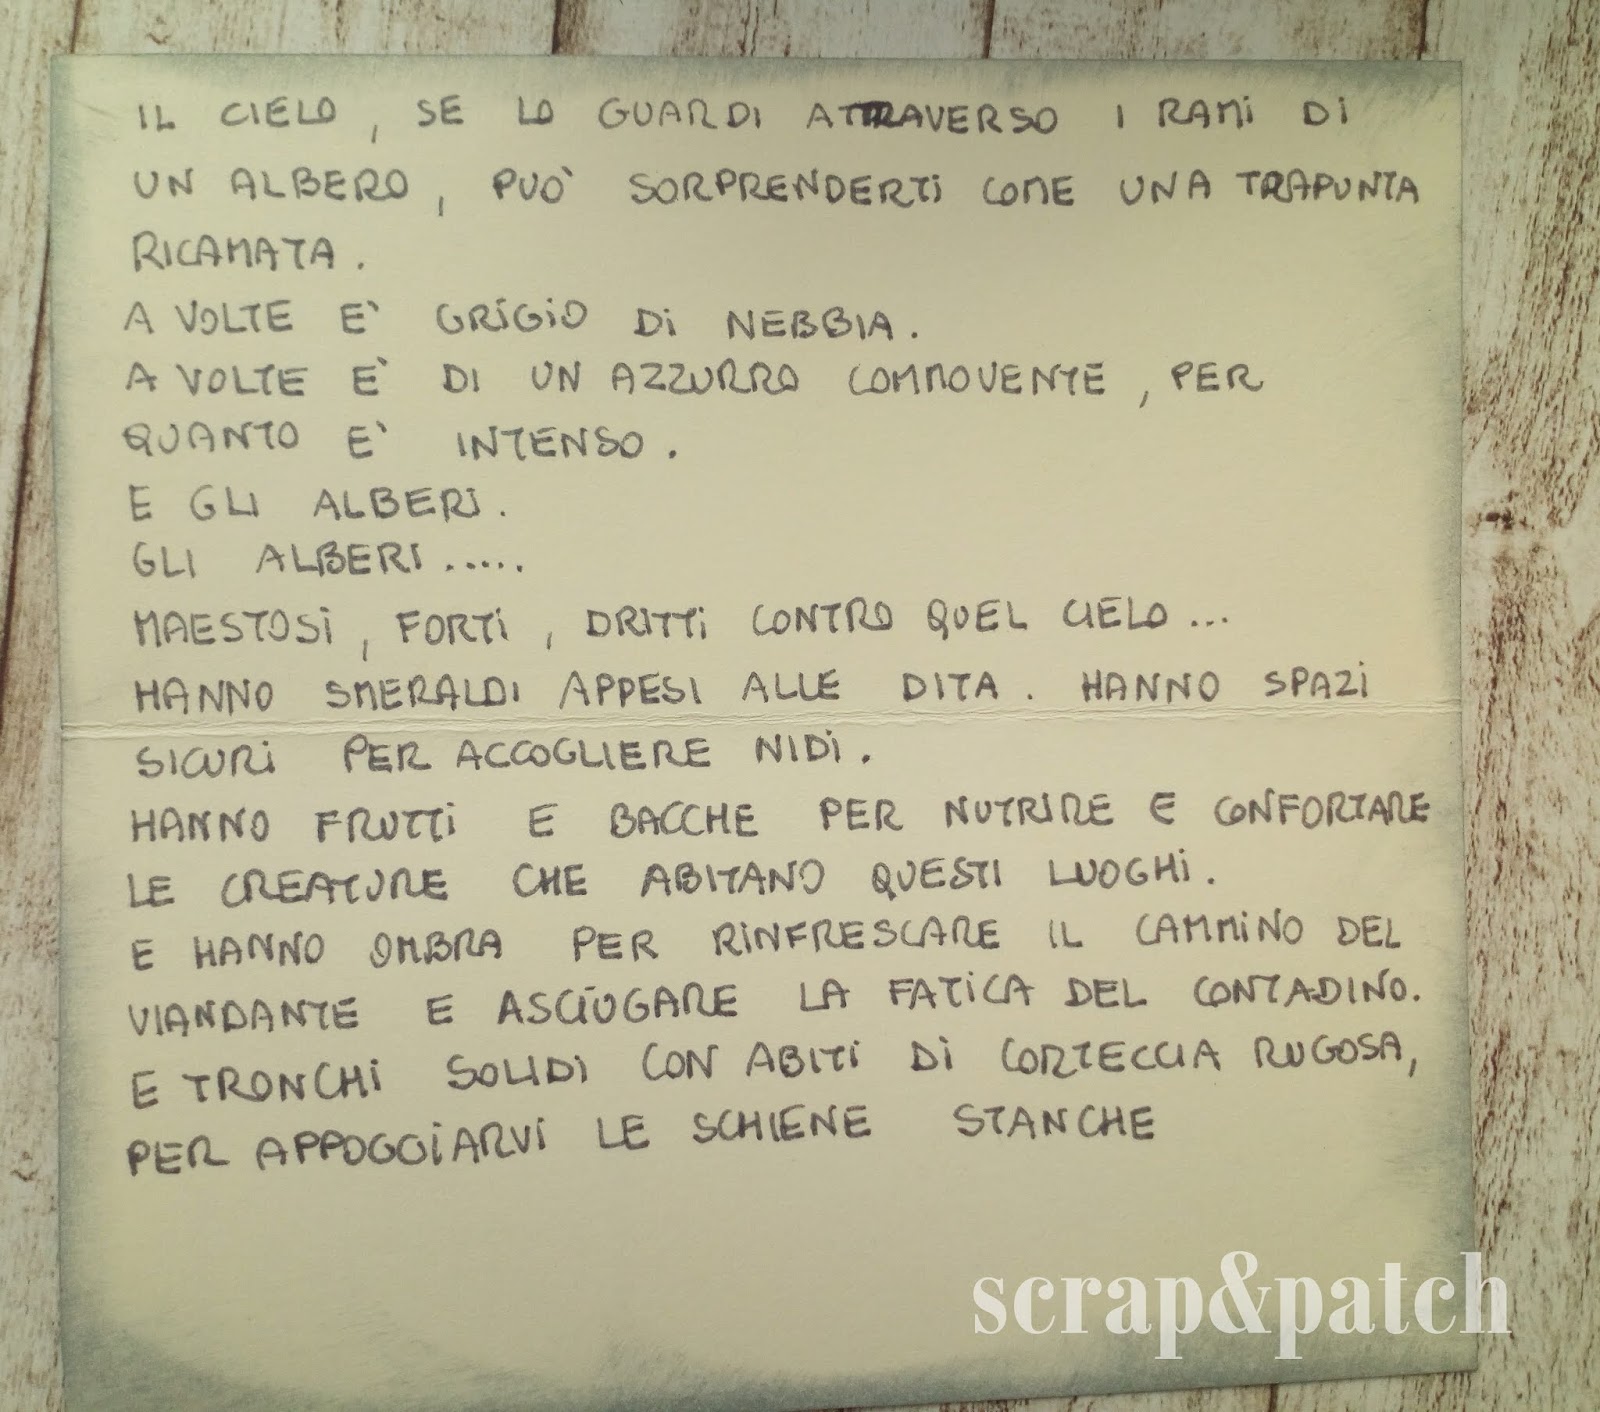 IL CIELO, SE LO GUARDI ATTRAVERSO I RAMI DI
UN ALBERO, PUO' SORPRENDERTI COME UNA TRAPUNTA
RICAMATA.
A VOLTE E' GRIGIO DI NEBBIA.
A VOLTE E' DI UN AZZURRO COMMOVENTE, PER
QUANTO E' INTENSO.
E GLI ALBERI.
GLI ALBERI.....
MAESTOSI, FORTI, DRITTI CONTRO QUEL CIELO...
HANNO SMERALDI APPESI ALLE DITA. HANNO SPAZI
SICURI PER ACCOGLIERE NIDI.
HANNO FRUTTI E BACCHE PER NUTRIRE E CONFORTARE
LE CREATURE CHE ABITANO QUESTI LUOGHI.
E HANNO OMBRA PER RINFRESCARE IL CAMMINO DEL
VIANDANTE E ASCIUGARE LA FATICA DEL CONTADINO.
E TRONCHI SOLIDI CON ABITI DI CORTECCIA RUGOSA,
PER APPOGGIARVI LE SCHIENE STANCHE
scrap&patch